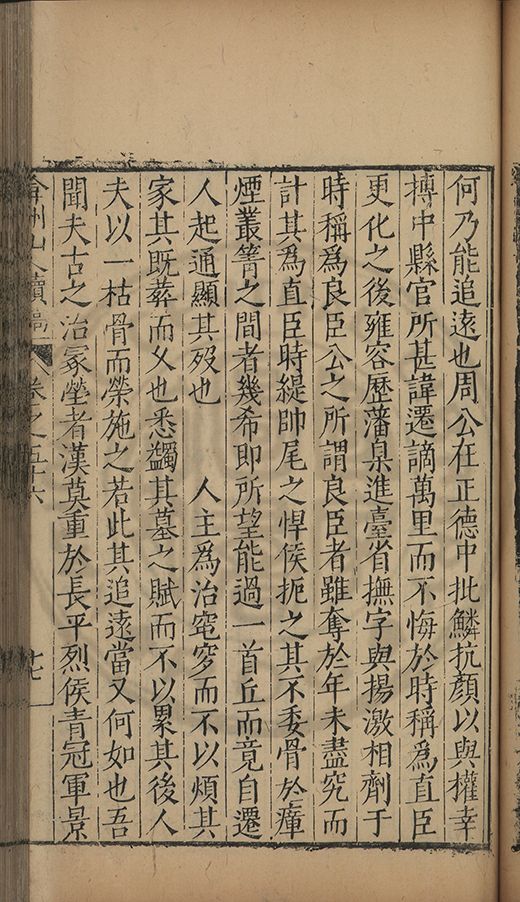 何乃能追遠也周公在正德中批鱗抗顏以與權幸
摶中縣官所甚諱遷謫萬里而不悔於時稱為直臣
更化之後雍容歷藩臬進臺省撫字與揚激相劑于
時稱為良臣公之所謂良臣者雖奪於年未盡究而
計其為直臣時緹帥尾之悍侯扼之其不委骨於瘴
煙叢箐之間者幾希即所望能過一首丘而竟自遷
人起通顯其歿也　　人主為治窀穸而不以煩其
家其既葬而久也悉蠲其墓之賦而不以累其後人
夫以一枯骨而榮施之若此其追遠當又何如也吾
聞夫古之治冢塋者漢莫重於長平烈侯青冠軍景
弇州山人續稿 卷之五十六 十七